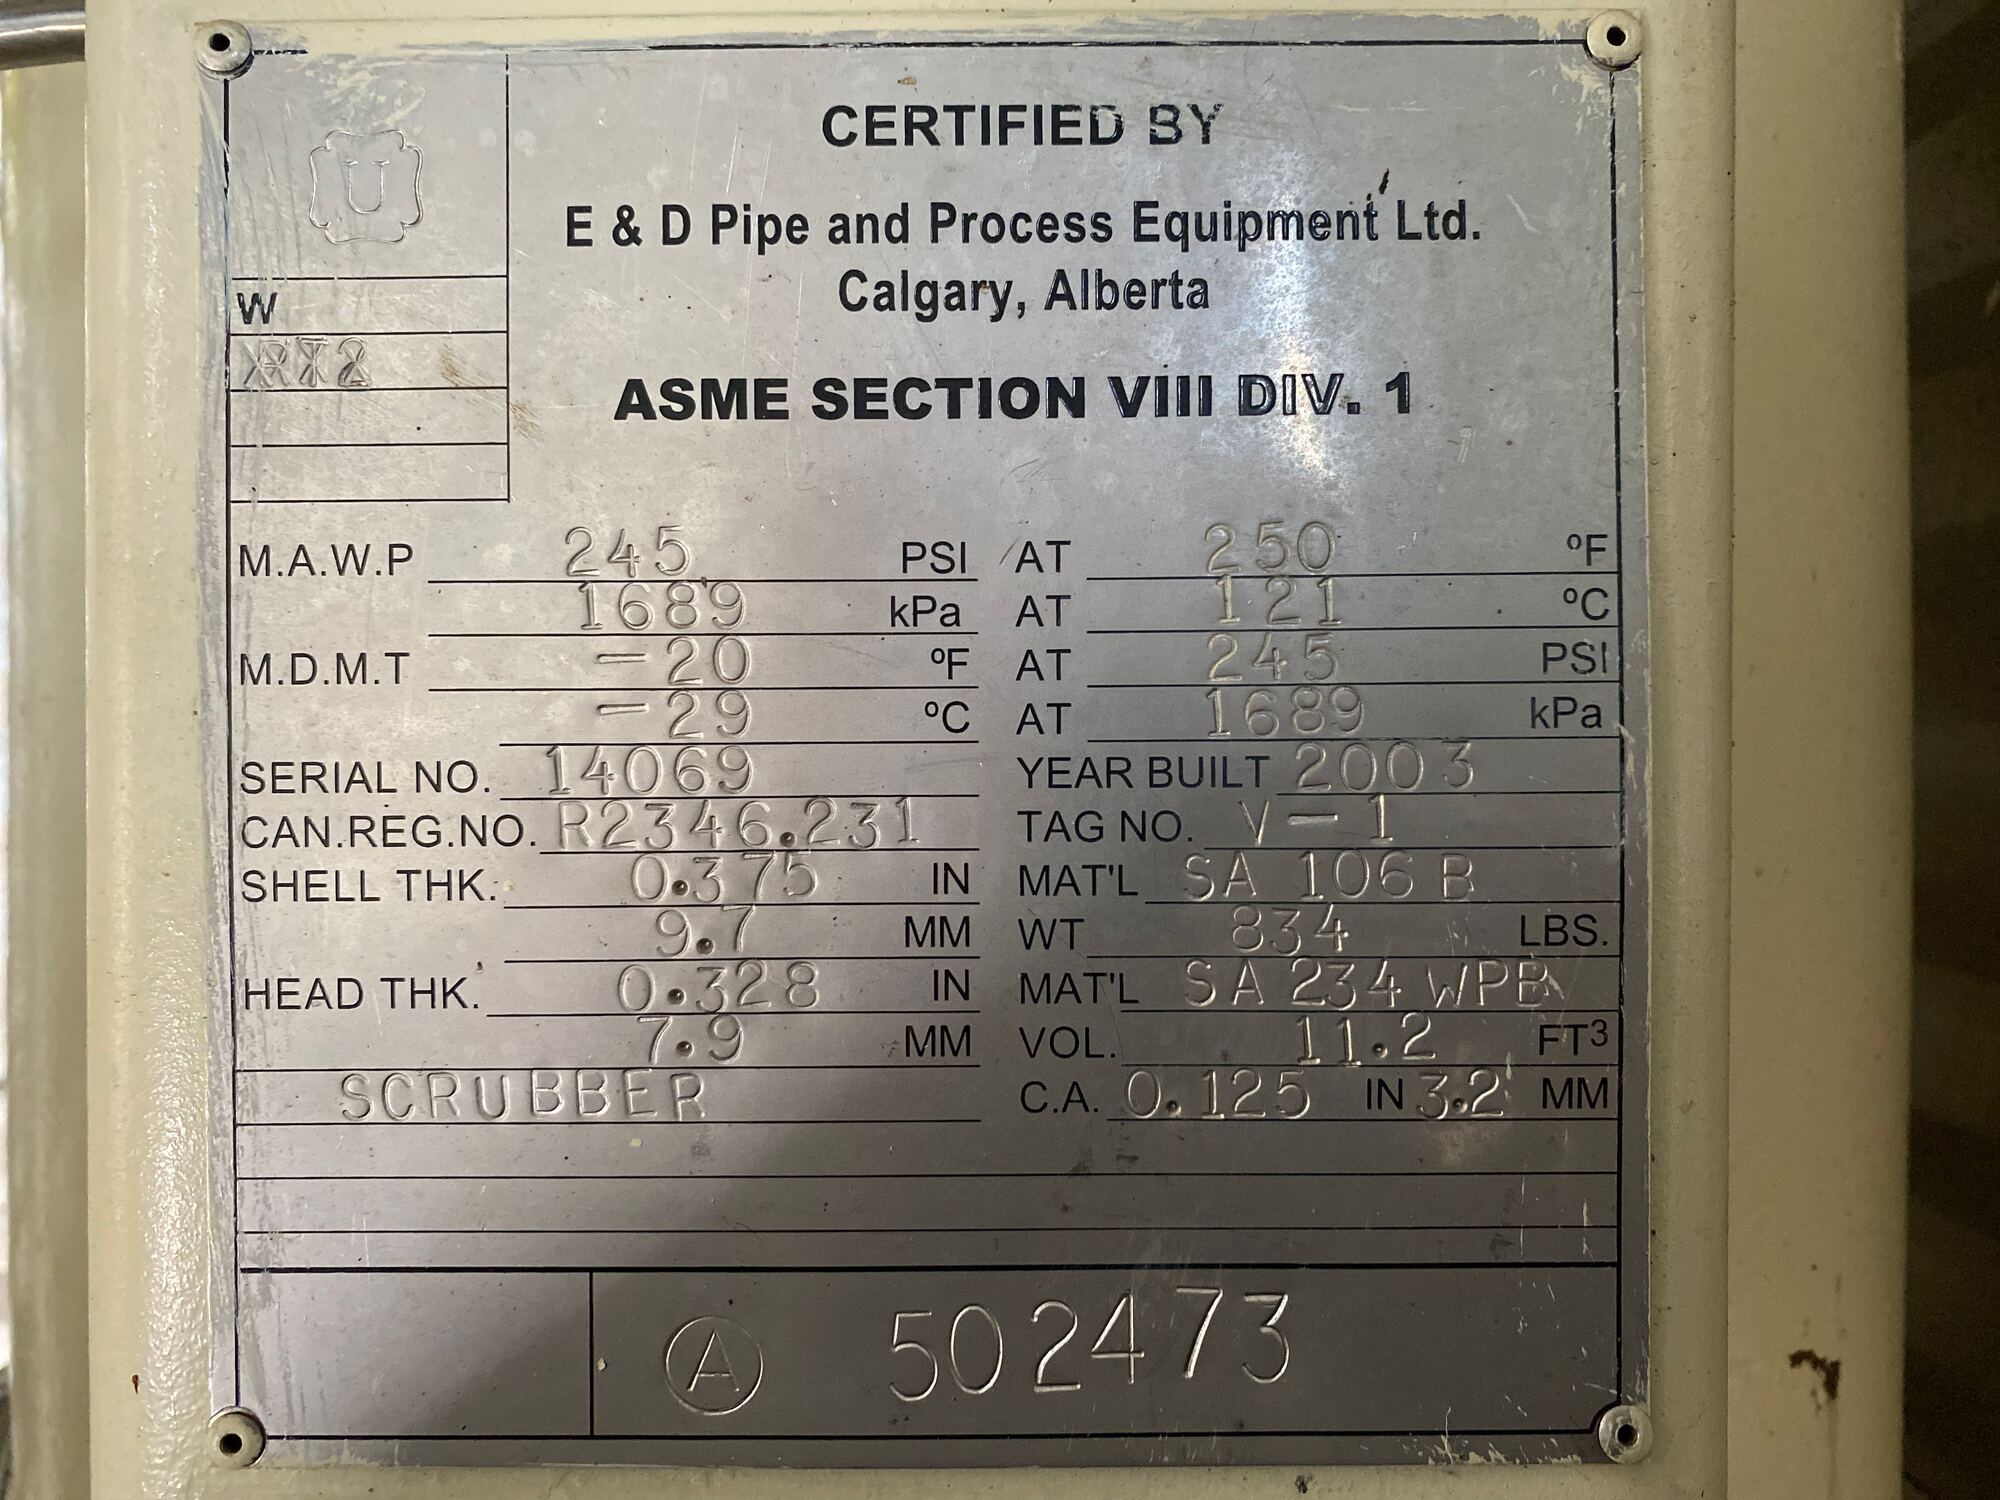 U
CERTIFIED BY
E & D Pipe and Process Equipment Ltd.
Calgary, Alberta
W
ASME SECTION VIII DIV. 1
M.A.W.P 245 PSI AT 250 ºF
1689 kPa AT 121 ºC
M.D.M.T -20 ºF AT 245 PSI
-29 ºC AT 1689 kPa
SERIAL NO. 14069 YEAR BUILT 2003
CAN.REG.NO. R2346.231 TAG NO. V-1
SHELL THK. 0.375 IN MAT'L SA 106 B
9.7 MM WT 834 LBS.
HEAD THK. 0.328 IN MAT'L SA 234 WPB
7.9 MM VOL. 11.2 FT3
SCRUBBER C.A. 0.125 IN 3.2 MM
A 502473